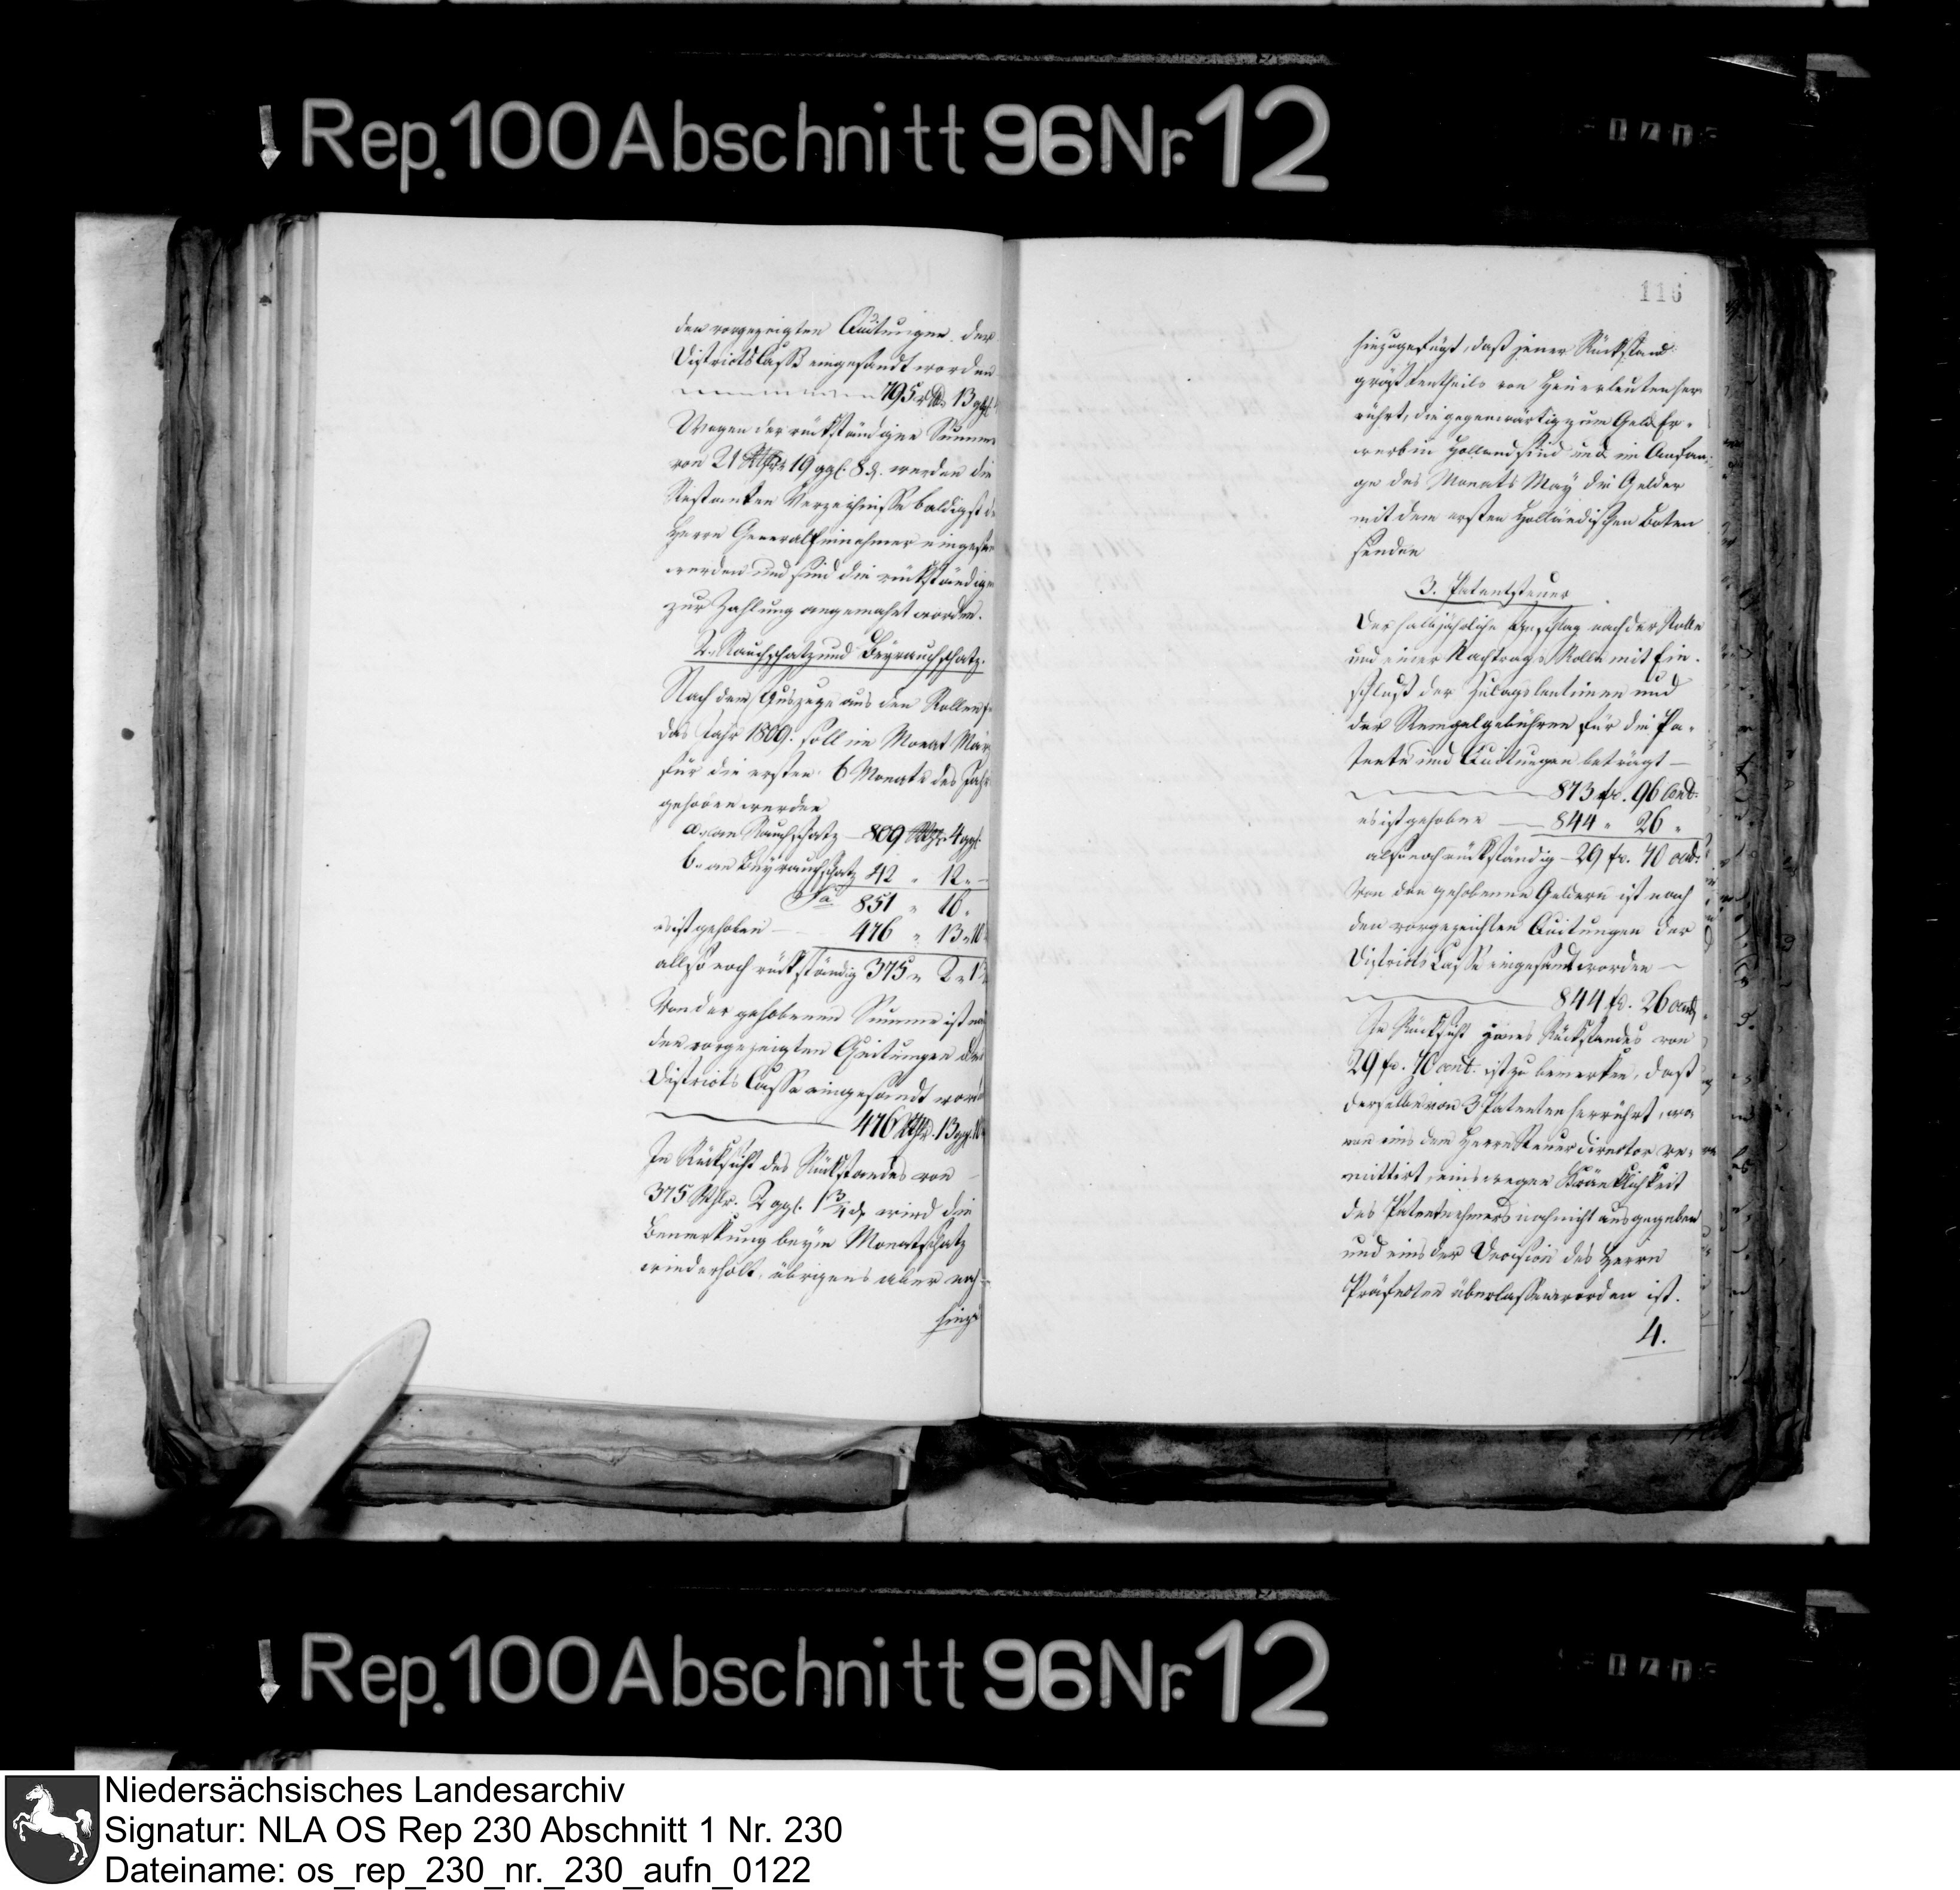 Rep. 100 Abschnitt 96 Nr. 12
den vorgezeigten Quitungen der
Districtscasse eingesandt worden
795 rthlr 13 ggl.
Wegen der rückständigen Summe
von 21 Rthlr 19 ggl. 8 d. werden die
Restanten Verzeichnisse baldigst
Herrn Generaleinnehmer
werden und sind die rückständigen
zur Zahlung angemahnt worden.
2. Rauchschatz und Beyrauchschatz.
Nach dem Auszuge aus den Rollen
das Jahr 1809. soll im Monat März
für die ersten 6 Monate des Jahrs
gehoben werden
a. an Rauchschatz — 809 Rthlr. 4 ggl.
b. an Beyrauchschatz 42 " 12 " —
Sa 851 " 16 "
es ist gehoben — 476 " 13 " 10
allso noch rückständig 375 " 2 " 1
Von der gehobenen Summe ist
den vorgezeigten Quitungen der
Districts Casse eingesandt
476 Rthlr. 13 ggl. 10
In Rücksicht des Rückstandes von
375 Rthlr. 2 ggl. 1 3/4 d. wird die
Bemerkung beym Monatschatz
wiederholt, übrigens aber noch
hinzu
116
hinzugefügt, daß jener Rückstand
größtentheils von Heuerleuten her
rührt, die gegenwärtig zum Geld Er-
werb in Holland sind und im Anfan-
ge des Monats May die Gelder
mit dem ersten Holländischen Boten
senden
3. Patentsteuer
Der halbjährliche Anschlag nach der Rolle
und einer Nachtrags Rolle mit Ein-
schluß der Zulagscentimen und
der Stempelgebühren für die Pa-
tente und Quitungen beträgt —
873 fr. 96 Cent.
es ist gehoben — 844 " 26 "
also noch rückständig — 29 fr. 70 cent.
Von den gehobenen Geldern ist nach
den vorgezeichten Quitungen der
Districts Casse eingesandt worden —
844 fr. 26 cent
In Rücksicht jenes Rückstandes von
29 fr. 70 cent. ist zu bemerken, daß
derselbe von 3 Patenten herrührt, wo
von eins dem Herrn Steuerdirector re-
mittirt, eins wegen Kränklichkeit
des Patentnehmers noch nicht ausgegeben
und eins der Decision des Herrn
Präfecten überlassen worden ist.
4.
Rep. 100 Abschnitt 96 Nr. 12
Niedersächsisches Landesarchiv
Signatur: NLA OS Rep 230 Abschnitt 1 Nr. 230
Dateiname: os_rep_230_nr._230_aufn_0122